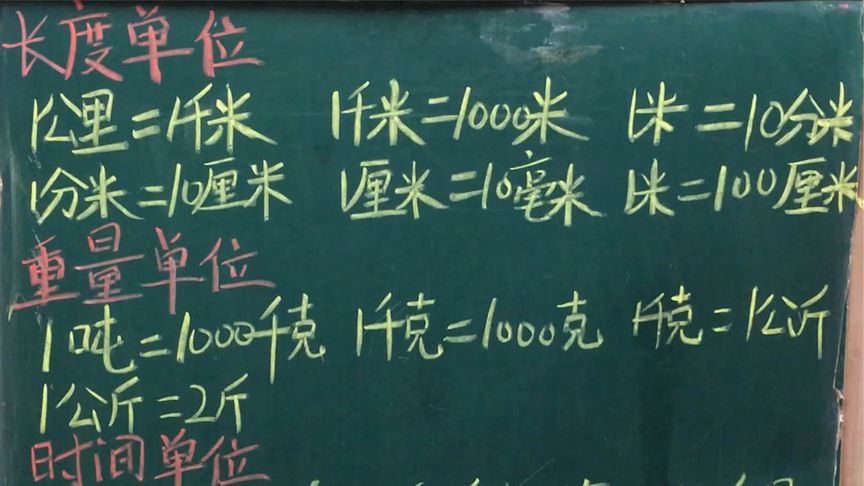 长度单位
1公里=1千米 1千米=1000米 1米=10分米
1分米=10厘米 1厘米=10毫米 1米=100厘米
重量单位
1吨=1000千克 1千克=1000克 1千克=1公斤
1公斤=2斤
时间单位